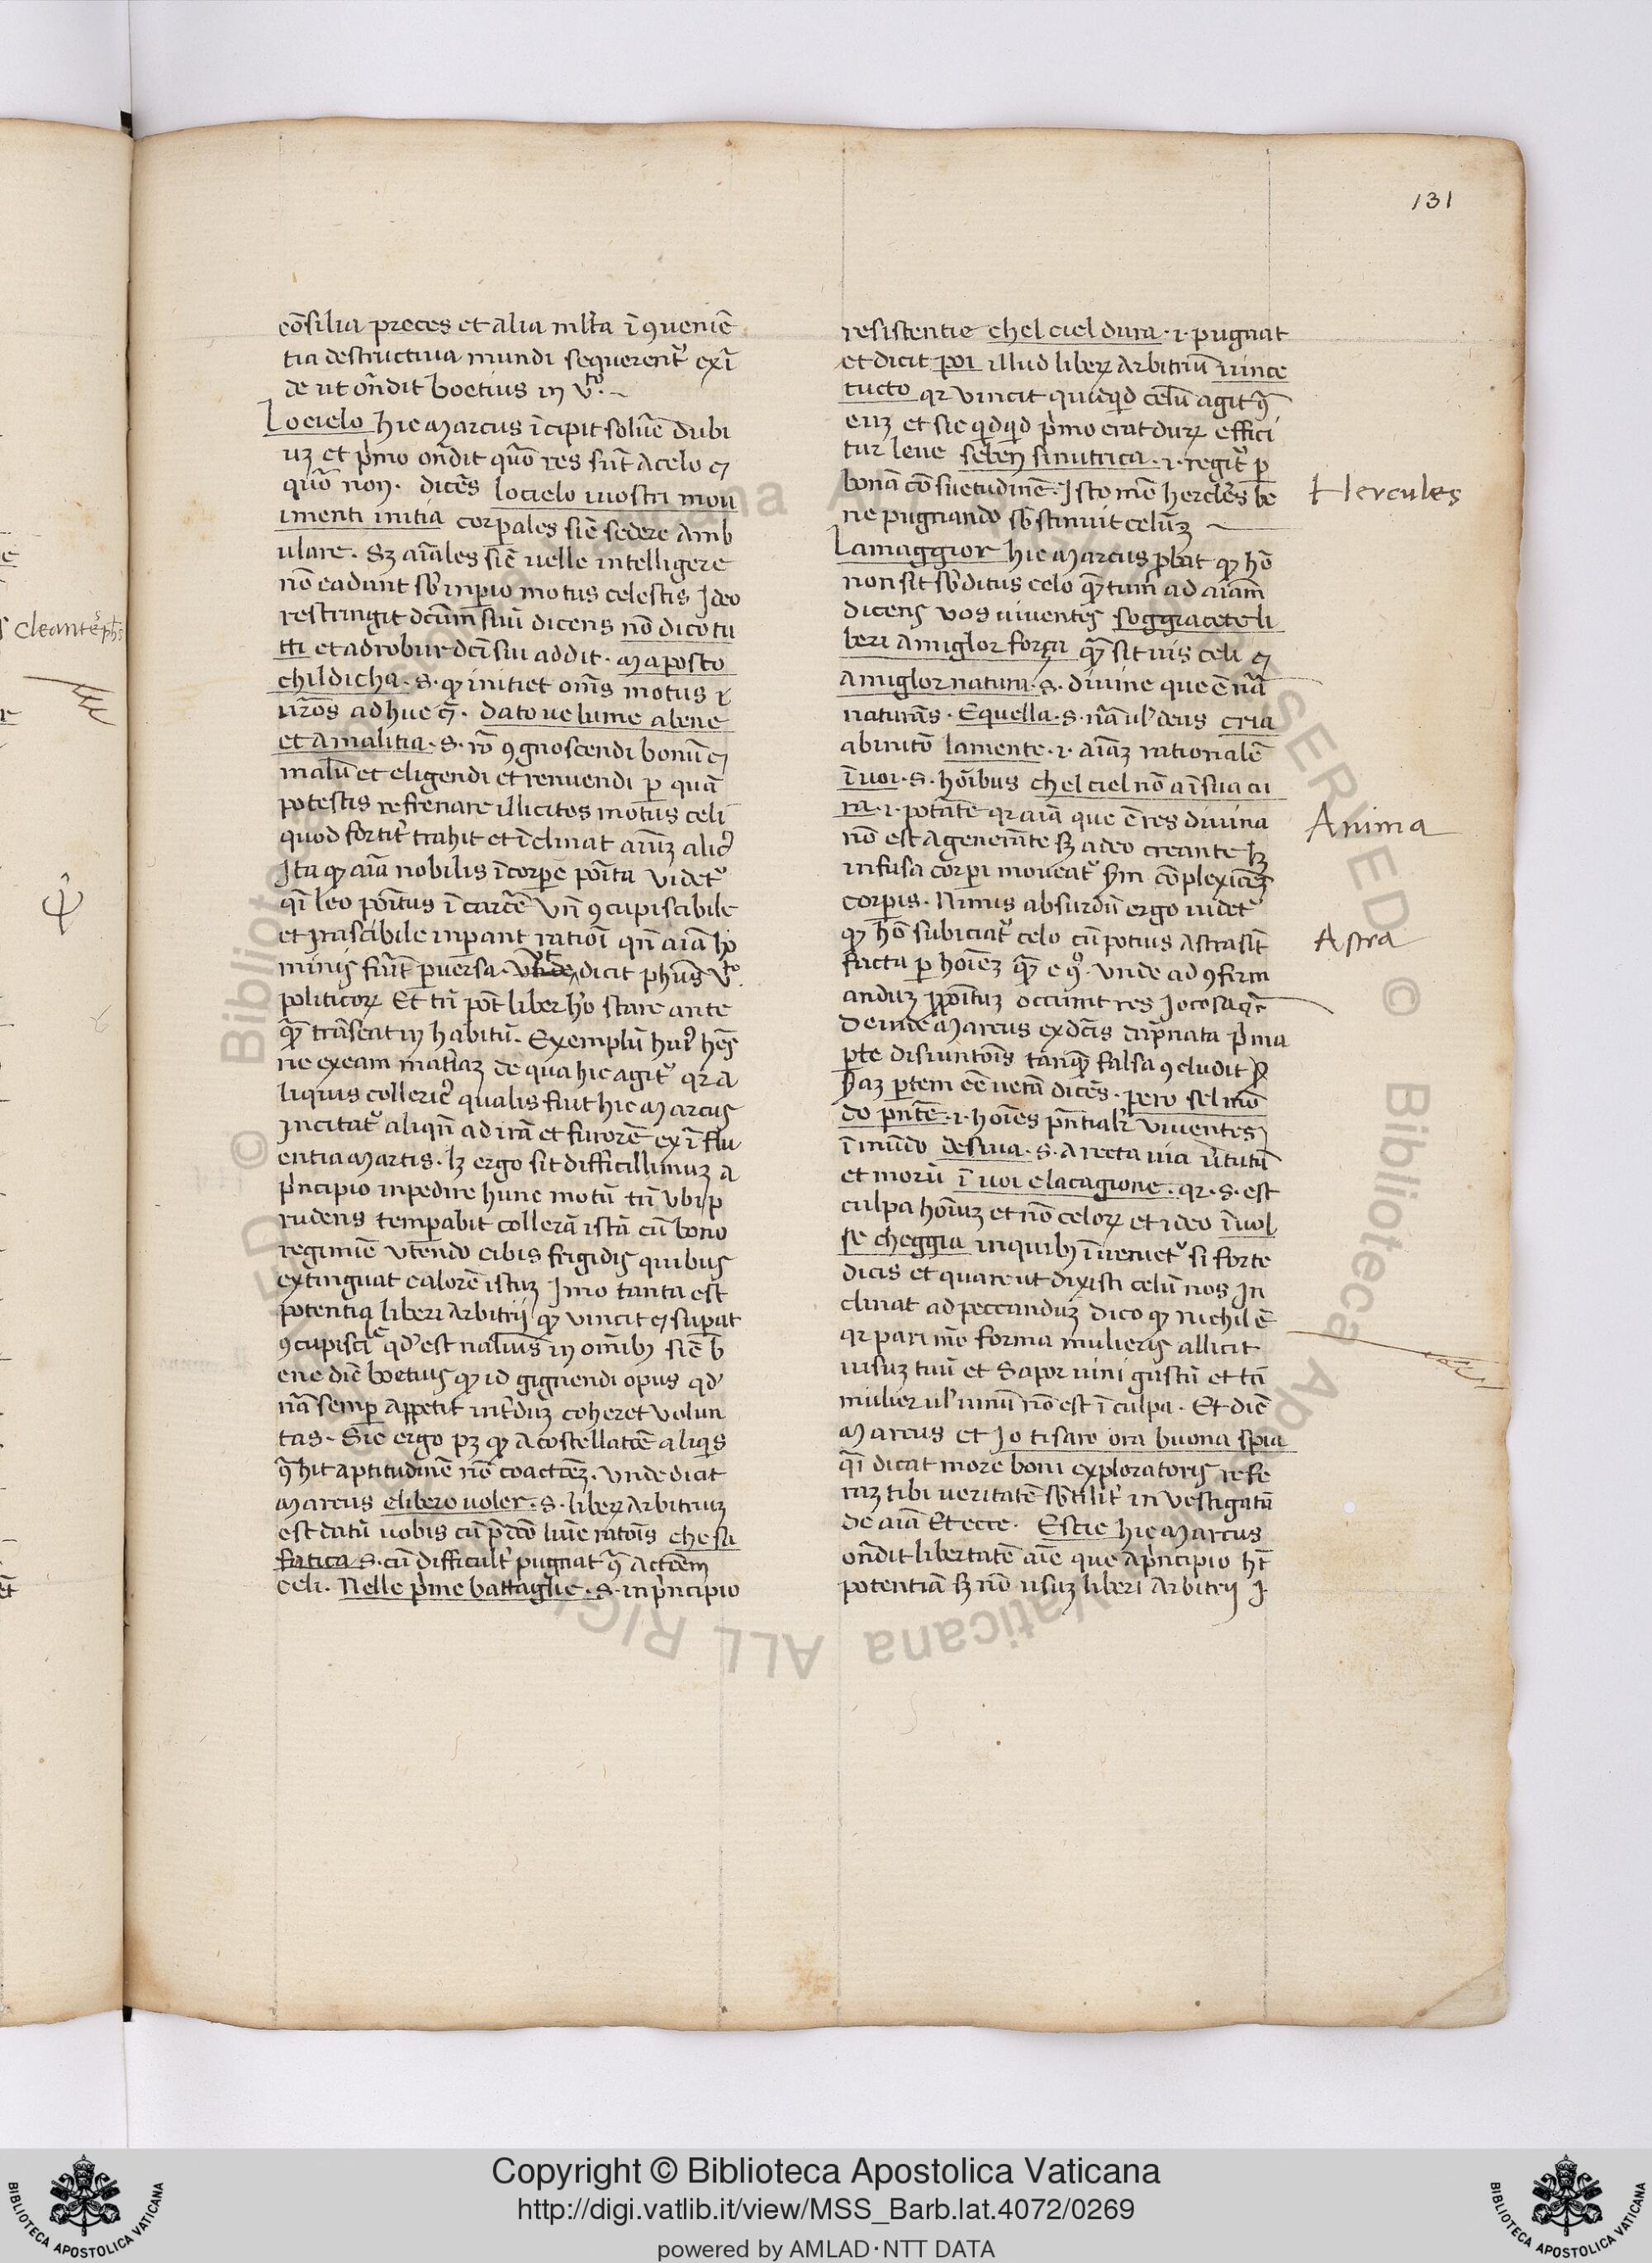 131
cōsilia preces et alia ml̄ta ī ꝯueniē
tia destructiua mundi sequerent᷑ exī
de ut oñdit boetius in v.to
Locielo hic Marcus īcipit soluē dubi
uꝫ et p̾mo oñdit quō res sūt a celo ⁊
quō non. dicēs locielo iuostri mou
imenti initia corꝑales sic̄ sedere amb
ulare. Sꝫ aīales sic̄ uelle intelligere
nō cadunt sb̾ inperio motus celestis Ideo
restringit dc̄um suū dicens nō dico tu
tti et ad robur dc̄i sui addit. Ma posto
childicha. s. ꝙ initiet om̄s motus
ur̄os adhuc
dato ue lume abene
et amalitia. s. rō ꝯgnoscendi bonū ⁊
malū et eligendi et renuendi ꝑ quā
potestis refrenare illicitos motus celi
quod fortit᷑ trahit et īclinat
Ita ꝙ aīa nobilis ī corpe poīta videt᷑
qī leo poītus ī carcē Vn̄ ꝯcupiscibile
et irascibile inꝑant ratiōi qn̄ aīa ho
minis fiūt ꝑuersa. dicit phūs v.to
politicoꝝ Et tn̄ pōt liber hō stare ante
ꝙ̄ trāseat in habitū. Exemplū hui᷒ hēs
ne exeam mat̾iaꝫ de qua hic agit᷑ qr a
liquis colleric᷒ qualis fuit hic Marcus
incitat᷑ aliqn̄ ad irā et furorē ex īflu
entia Martis. lꝫ ergo sit difficillimuꝫ a
p̾ncipio inpedire hunc motū tn̄ vbi p
rudens temꝑabit collerā istā cū bono
regimīe vtendo cibis frigidis quibus
extinguat calorē istuꝫ Imo tanta est
potentia liberi arbitrij ꝙ vincit ⁊ suꝑat
ꝯcupisci qd̾ est in omībꝫ sic̄ b
ene dic̄ boetius ꝙ id gignendi opus qd̾
nā semꝑ appetit int̾duꝫ coheret volun
tas. Sic ergo pꝫ ꝙ a costellatōe aliqis
aptitudinē nō coactōeꝫ. vnde dicit
Marcus elibero uoler. s. liberꝝ arbitriuꝫ
est datū uobis cū lūie ratōis che sa
fatica s. cū difficult̾ pugnat actōem
celi. Nelle p̾me battaglie. s. in p̾ncipio
resistentie chel ciel dura .i. pugnat
et dicit poi illud liberꝝ arbitriū uince
tucto qr vincit quicqid celū agit
euꝫ et sic qidqid p̾mo erat durꝝ effici
tur leue seben sinutrica .i. regit᷑ ꝑ
bonā cōsuetudinē. Isto mō hercl̾es be
ne pugnando sb̾stinuit celūꝫ
Hercules
Lamaggior hic Marcus ꝓbat ꝙ hō
non sit sb̾ditus celo ꝙ̄tum ad aīam
dicens vos uiuentes soggiacete li
beri amiglor força ꝙ̄ sit uis celi ⁊
amiglor natura. s. diuine que ē nā
naturās. Equella. s. nā ul̾ deus cria
ab initō lamente .i. aīaꝫ rationalē
ī uoi. s. hoībus chel ciel nō aīsua cu
ra .i. potātē qr aīa que ē res diuina
Anima
nō est a generāte sꝫ a deo creante lꝫ
infusa corꝑi moueat᷑ complexiōeꝫ
corꝑis. Nimis absurdū ergo uidet᷑
ꝙ hō subiciat᷑ celo cū potius astra sīt
Astra
facta ꝑ hoīeꝫ ꝙ̄ e ꝯ᷒. vnde ad ꝯfirm
anduꝫ ꝓpoītuꝫ occurrit res iocosa
Deinde Marcus ex dc̄is p̾ma
ꝑte disiuntōis tanꝙ̄ falsa ꝯcludit
ꝑtem eē uerā dicēs. Pero sel mō
do pn̄te .i. hoīes pn̄tial̾r viuentes
ī mūdo desuia. s. a recta uia ūtutū
et morū ī uoi e lacagione. qr. s. est
culpa hoīuꝫ et nō celorꝝ et ideo īuol
se cheggia inquibꝫ īueniet᷑ si forte
dicis et quare ut dixisti celū nos in
clinat ad peccanduꝫ dico ꝙ nichil ē
qr pari mō forma mulieris allicit
uisuꝫ tuū et sapor uini gustū et tn̄
mulier ul̾ uinū nō est ī culpa. Et dic̄
Marcus et Io tisaro ora buona spia
qī dicat more boni exploratoris refe
raꝫ tibi ueritatē sb̾tilit̾ in vestigatā
de aīa Et ecce. Escie hic Marcus
oñdit libertatē aīe que a p̾ncipio hꝫ
potentiā sꝫ nō usuꝫ liberi arbitrij I.
Cleantes phs
Copyright © Biblioteca Apostolica Vaticana
http://digi.vatlib.it/view/MSS_Barb.lat.4072/0269
powered by AMLAD·NTT DATA
BIBLIOTECA APOSTOLICA VATICANA
BIBLIOTECA APOSTOLICA VATICANA